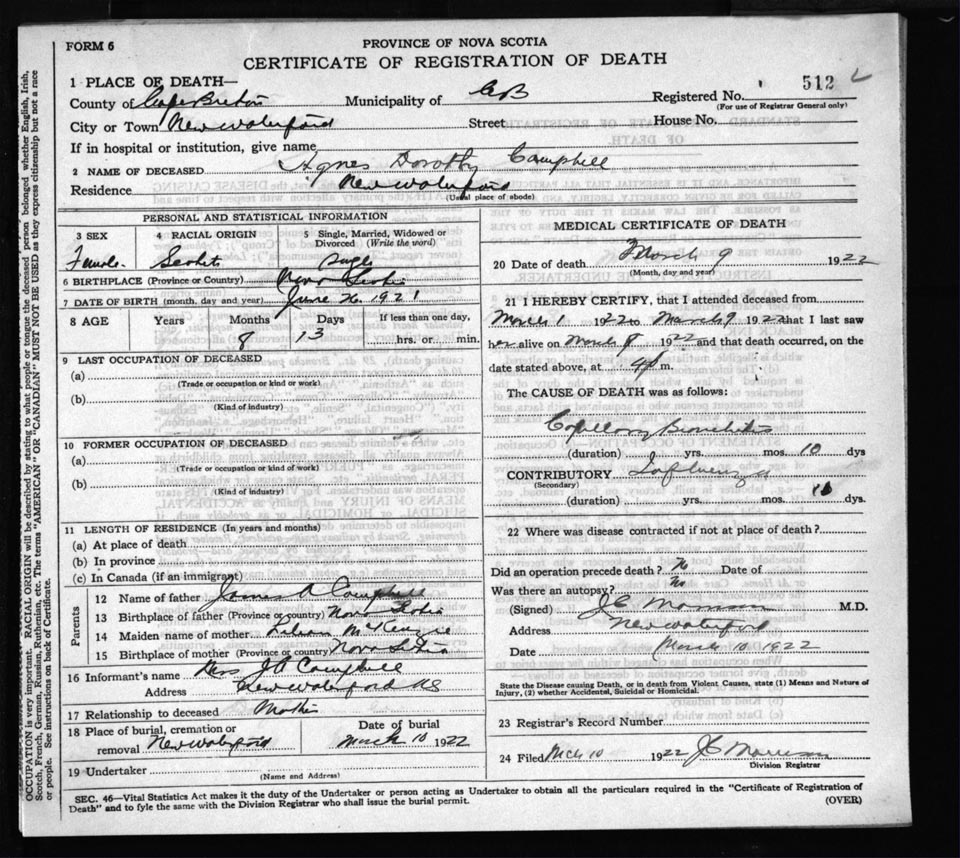 FORM 6
PROVINCE OF NOVA SCOTIA
CERTIFICATE OF REGISTRATION OF DEATH
1 PLACE OF DEATH—
County of Cape Breton Municipality of CB Registered No. 512
(For use of Registrar General only)
City or Town New Waterford Street House No.
If in hospital or institution, give name
2 NAME OF DECEASED Agnes Dorothy Campbell
Residence New Waterford
(Usual place of abode)
PERSONAL AND STATISTICAL INFORMATION
3 SEX 4 RACIAL ORIGIN 5 Single, Married, Widowed or Divorced (Write the word)
Female Scotch Single
6 BIRTHPLACE (Province or Country) Nova Scotia
7 DATE OF BIRTH (month, day and year) June 26 1921
8 AGE Years Months Days If less than one day,
8 13 hrs. or min.
9 LAST OCCUPATION OF DECEASED
(a)
(Trade or occupation or kind or work)
(b)
(Kind of industry)
10 FORMER OCCUPATION OF DECEASED
(a)
(Trade or occupation or kind of work)
(b)
(Kind of industry)
11 LENGTH OF RESIDENCE (In years and months)
(a) At place of death
(b) In province
(c) In Canada (if an immigrant)
Parents
12 Name of father James A Campbell
13 Birthplace of father (Province or country) Nova Scotia
14 Maiden name of mother McKenzie
15 Birthplace of mother (Province or country) Nova Scotia
16 Informant's name Mrs J A Campbell
Address New Waterford NS
17 Relationship to deceased Mother
18 Place of burial, cremation or removal New Waterford Date of burial March 10 1922
19 Undertaker
(Name and Address)
MEDICAL CERTIFICATE OF DEATH
20 Date of death March 9 1922
(Month, day and year)
21 I HEREBY CERTIFY, that I attended deceased from
March 1 1922 to March 9 1922 that I last saw
her alive on March 8 1922 and that death occurred, on the
date stated above, at 4 p m.
The CAUSE OF DEATH was as follows:
Capillary Bronchitis
(duration) yrs. mos. 10 dys
CONTRIBUTORY Influenza
(Secondary)
(duration) yrs. mos. dys.
22 Where was disease contracted if not at place of death?
Did an operation precede death? No Date of
Was there an autopsy? No
(Signed) J C Morrison M.D.
Address New Waterford
Date March 10 1922
State the Disease causing Death, or in Death from Violent Causes, state (1) Means and Nature of
Injury, (2) whether Accidental, Suicidal or Homicidal.
23 Registrar's Record Number
24 Filed Mch 10 1922 J C Morrison
Division Registrar
SEC. 46—Vital Statistics Act makes it the duty of the Undertaker or person acting as Undertaker to obtain all the particulars required in the "Certificate of Registration of
Death" and to fyle the same with the Division Registrar who shall issue the burial permit.
(OVER)
OCCUPATION is very important. RACIAL ORIGIN will be described by stating to what people or tongue the deceased person belonged whether English, Irish,
Scotch, French, German, Russian, Ruthenian, etc. The terms "AMERICAN" OR "CANADIAN" MUST NOT BE USED as they express citizenship but not a race
or people. See instructions on back of Certificate.